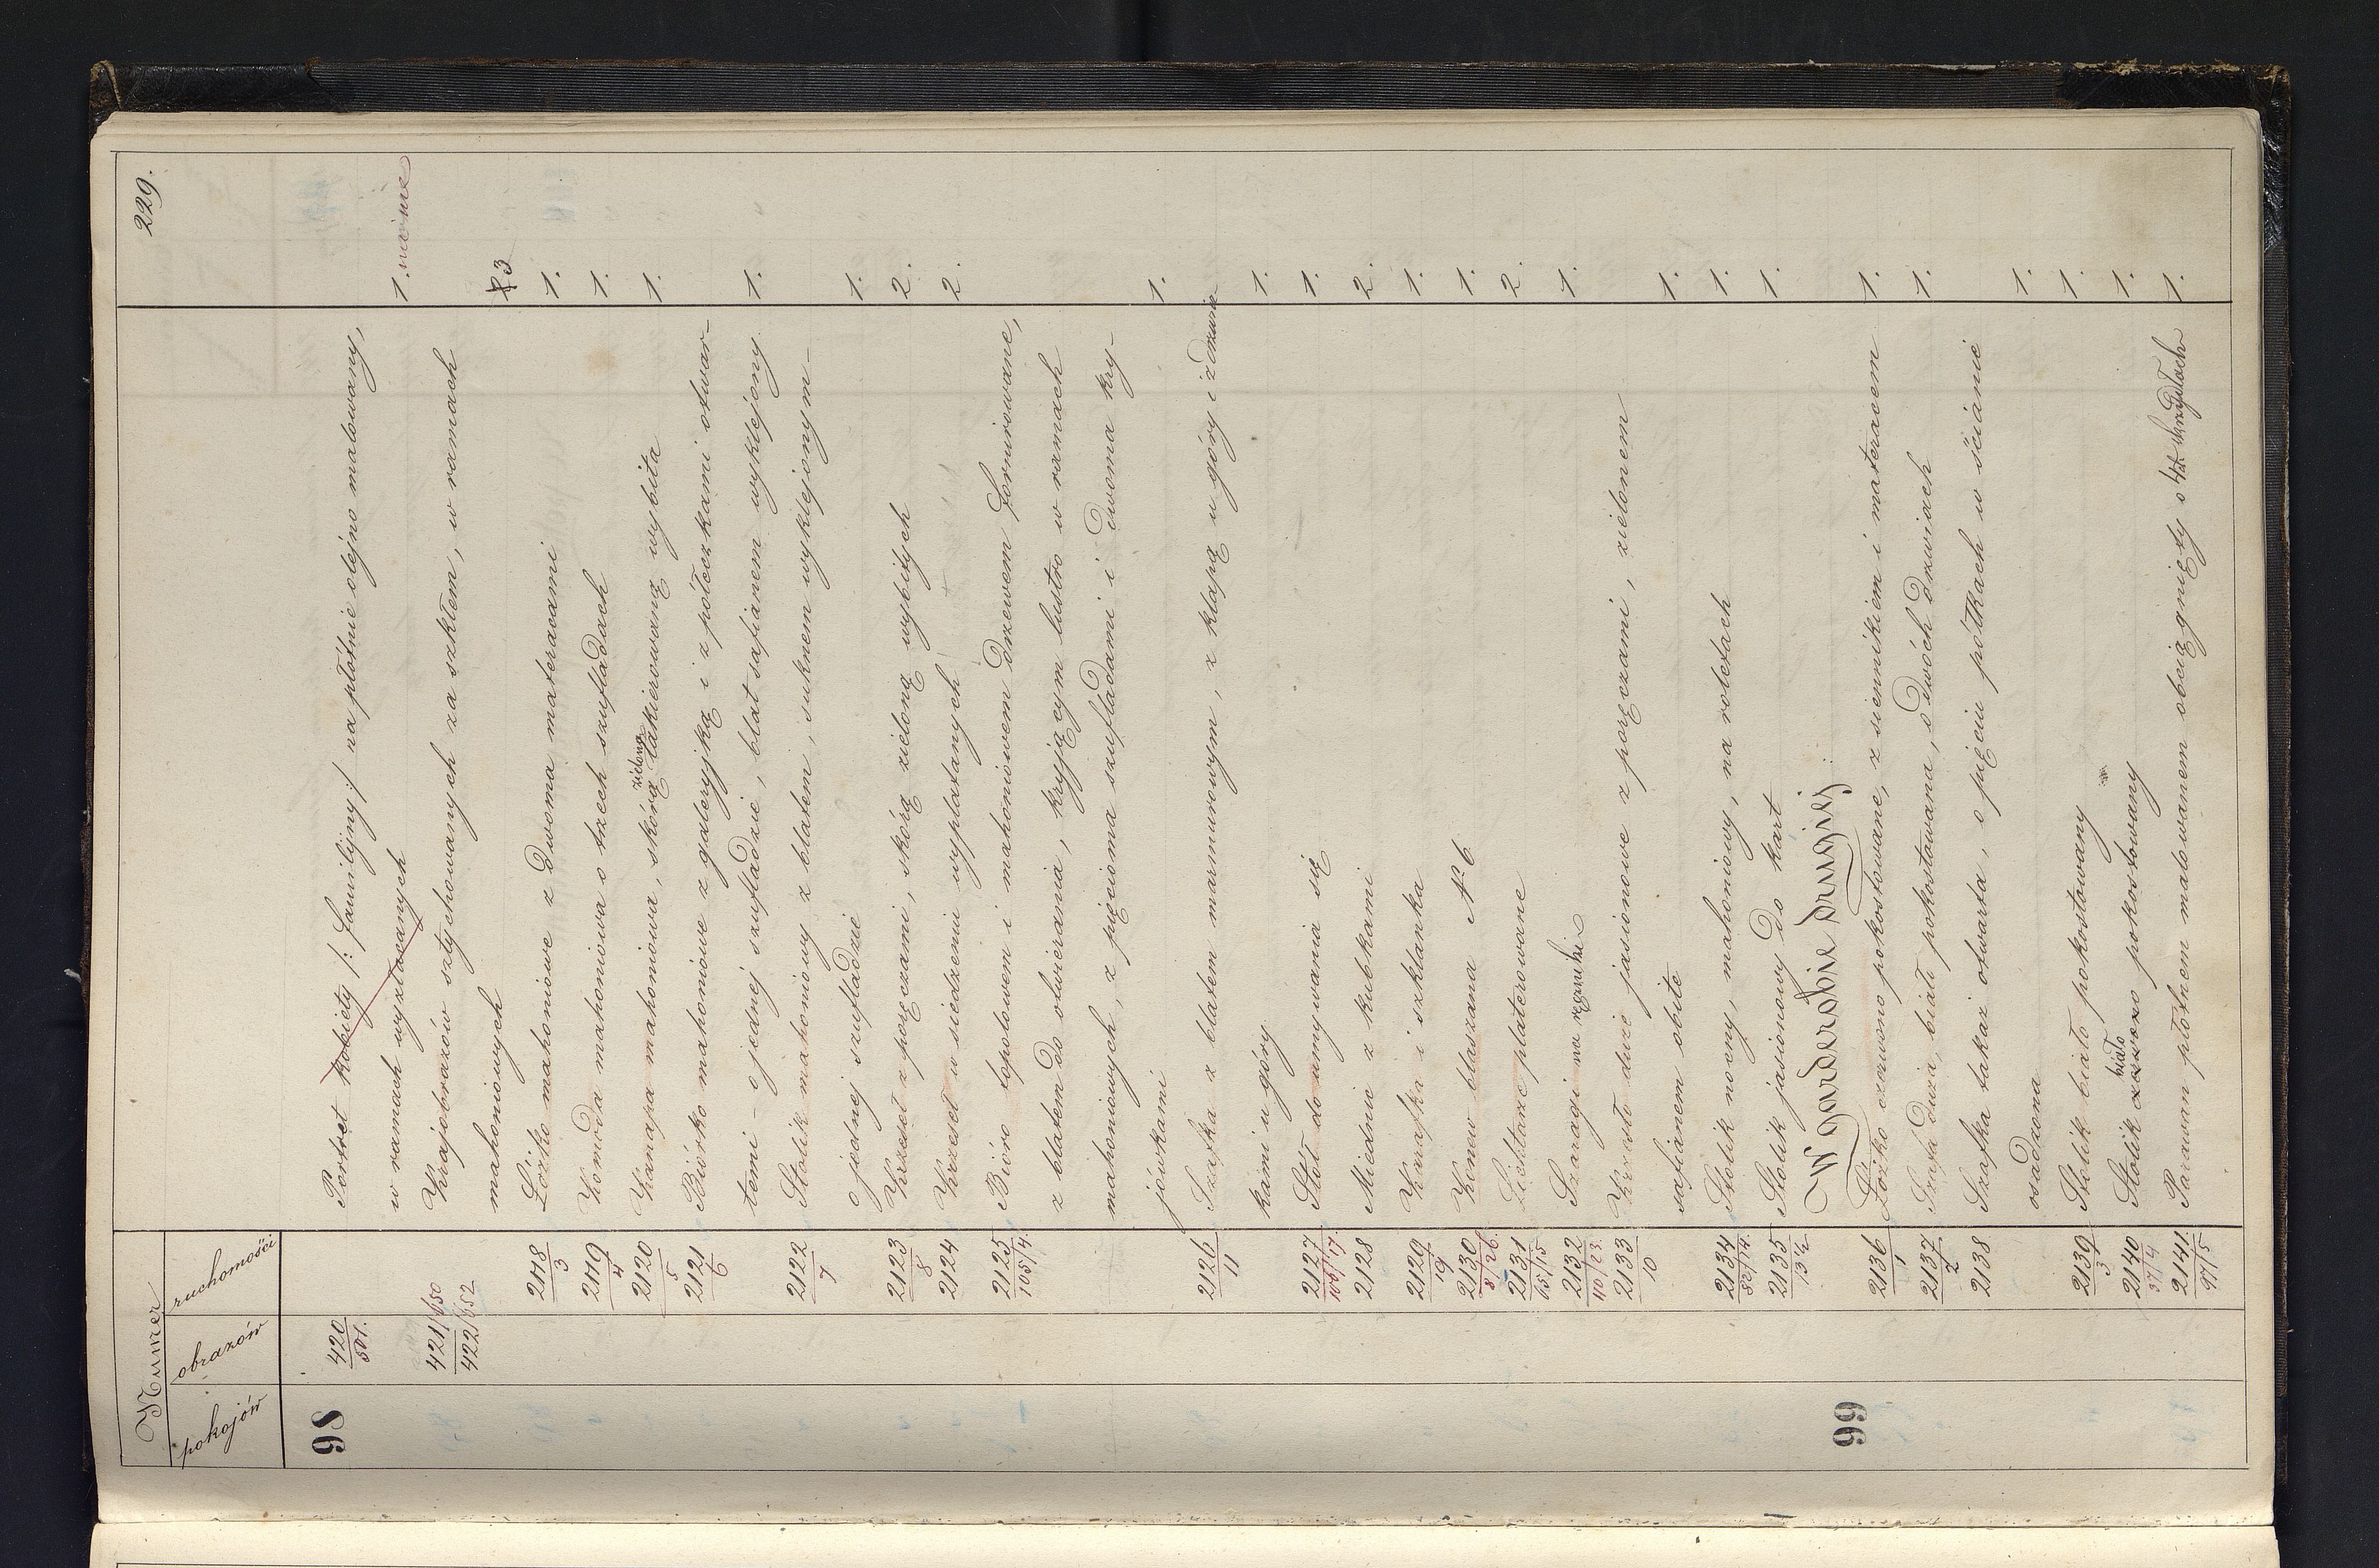 229.
Numer
pokojów obrazów ruchomości
98 420/501. Portret kobiety /: familijny :/ na płótnie olejno malowany,
w ramach wyzłacanych 1. niema
421/650 Krajobrazów sztychowanych za szkłem, w ramach
422/652 mahoniowych 3
2118/3 Łóżko mahoniowe z dwoma materacami 1.
2119/4 Komoda mahoniowa o trzech szufladach 1.
2120/5 Kanapa mahoniowa, skórą zieloną lakierowaną wybita 1.
2121/6 Biórko mahoniowe z galeryjką i z półeczkami otwar-
temi - o jednéj szufladzie, blat safianem wyklejony 1.
2122/7 Stolik mahoniowy z blatem, suknem wyklejonym -
o jednéj szufladzie 1.
2123/8 Krzeseł z poręczami, skórą zieloną wybitych 2.
2124 Krzeseł w siedzeniu wyplatanych 2.
2125 105/4. Bióro topolowem i mahoniowem drzewem fornirowane,
z blatem do otwierania, kryjącym lustro w ramach
mahoniowych, z pięcioma szufladami i dwoma kry-
jówkami 1.
2126/11 Szafka z blatem marmurowym, z klapą u góry i z drzwicz-
kami u góry 1.
2127 106/17. Stół do umywania się 1.
2128 Miednic z kubkami 2.
2129/19 Karafka i szklanka 1.
2130 8/26. Konew blaszana N. 6. 1.
2131 65/15 Lichtarze platerowane 2.
2132 40/23. Szaragi na ręczniki 1.
2133/10 Krzesło duże jasionowe z poręczami, zielonem
safianem obite 1.
2134 82/14. Stolik nocny, mahoniowy, na roletach 1.
2135 13 1/2 Stolik jasionowy do kart 1.
99 W garderobie drugiéj.
2136/1 Łóżko czerwono pokostowane, z siennikiem i materacem 1.
2137/2 Szafa duża, biało pokostowana, o dwóch drzwiach 1.
2138 Szafka takaż otwarta, o pięciu półkach w ścianie
osadzona 1.
2139/3 Stolik biało pokostowany 1.
2140 37/4 Stolik biało pokostowany 1.
2141 97/5 Parawan płótnem malowanem obciągnięty o 4 skrzydłach 1.